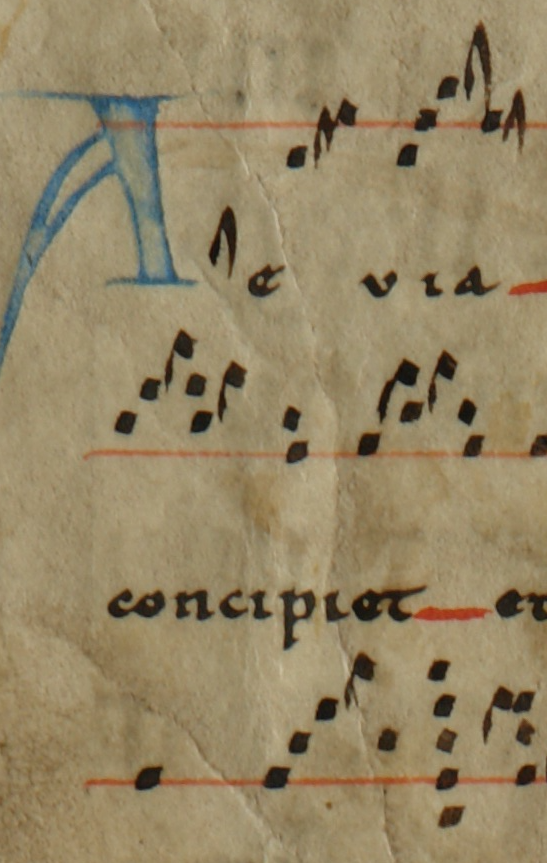 Ae via
concipiet et